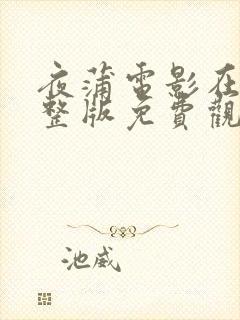 夜蒲電影在
整版免費觀
池威